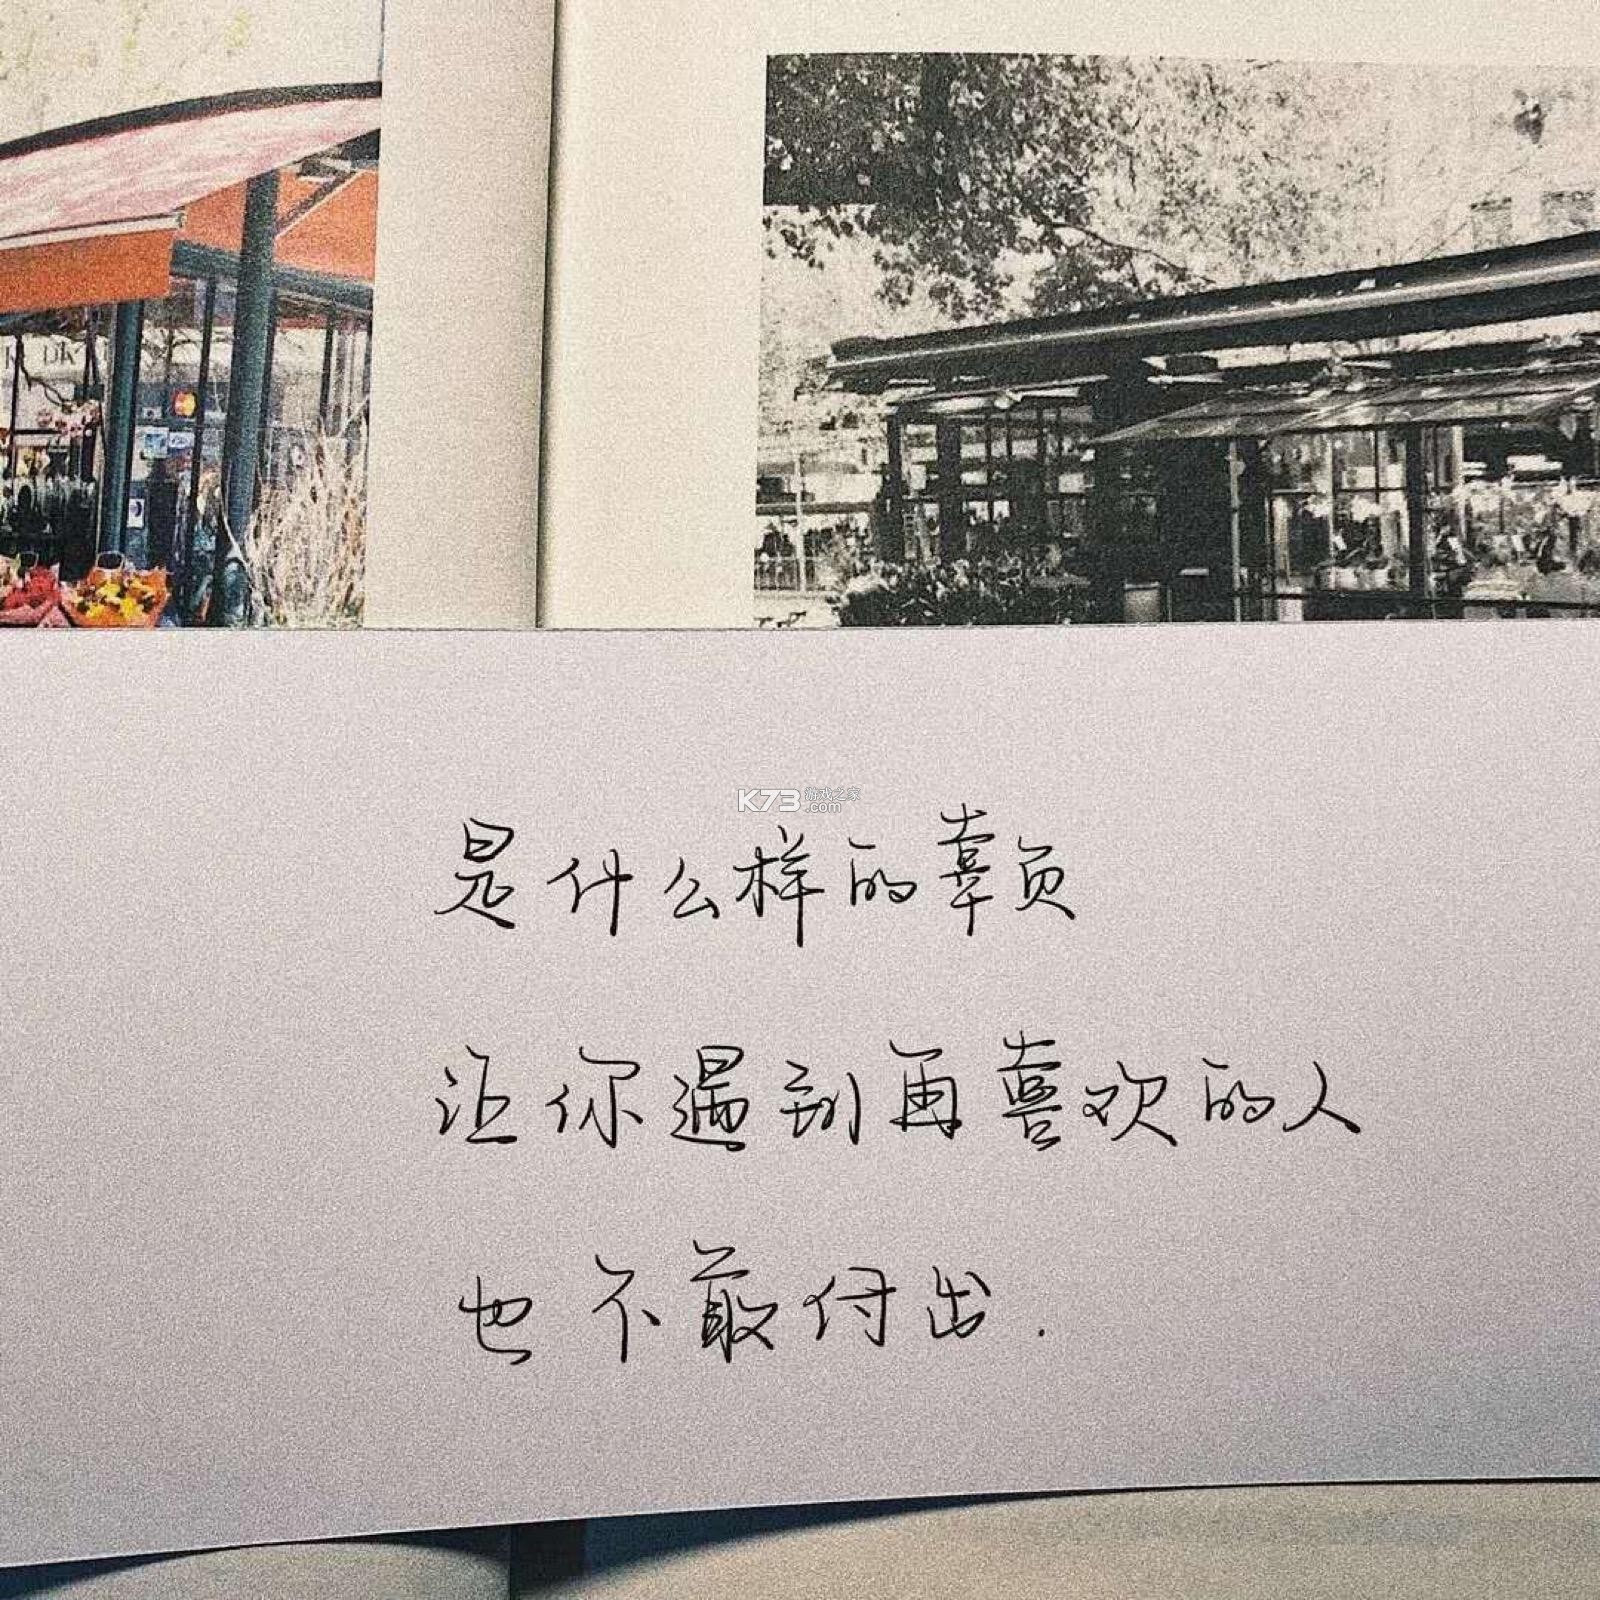 K73 游戏之家
.com
是什么样的辜负
让你遇到再喜欢的人
也不敢付出.